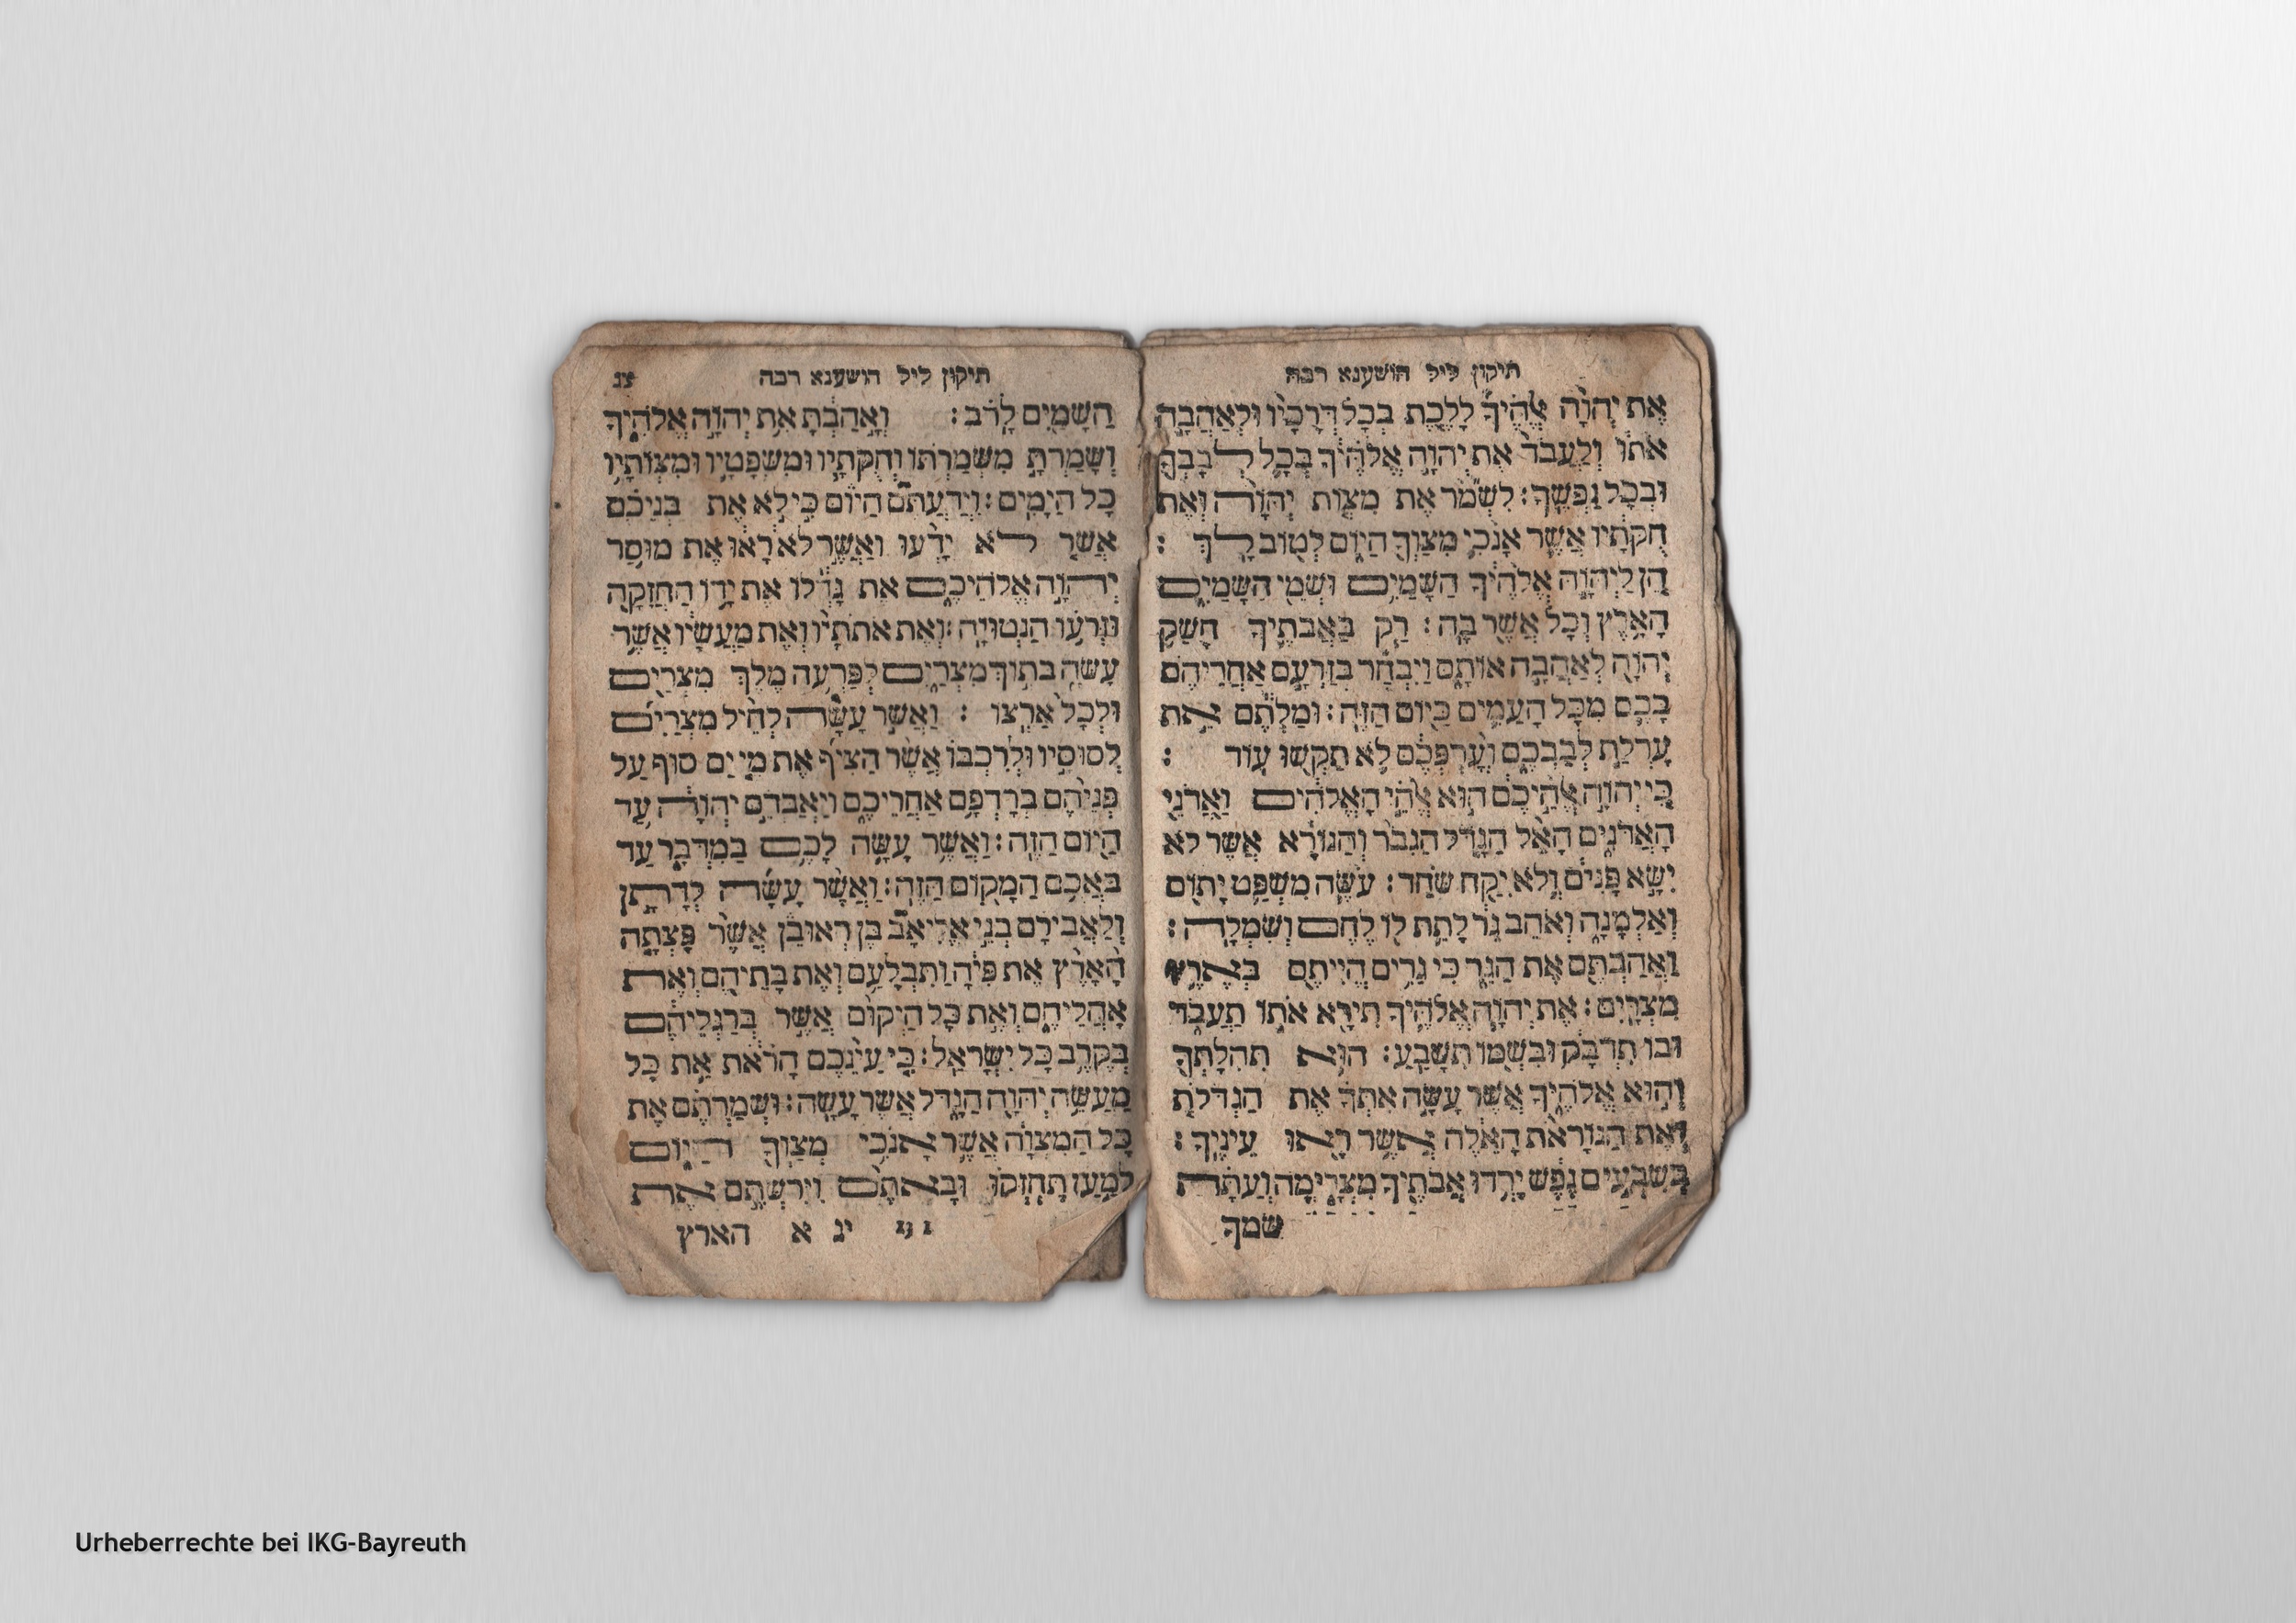 תיקון ליל הושענא רבה
אֶת יְהוָה אֱלֹהֶיךָ לָלֶכֶת בְּכָל דְּרָכָיו וּלְאַהֲבָה
אֹתוֹ וְלַעֲבֹד אֶת יְהוָה אֱלֹהֶיךָ בְּכָל לְבָבְךָ
וּבְכָל נַפְשֶׁךָ׃ לִשְׁמֹר אֶת מִצְוֹת יְהוָה וְאֶת
חֻקֹּתָיו אֲשֶׁר אָנֹכִי מְצַוְּךָ הַיּוֹם לְטוֹב לָךְ ׃
הֵן לַיהוָה אֱלֹהֶיךָ הַשָּׁמַיִם וּשְׁמֵי הַשָּׁמָיִם
הָאָרֶץ וְכָל אֲשֶׁר בָּהּ׃ רַק בַּאֲבֹתֶיךָ חָשַׁק
יְהוָה לְאַהֲבָה אוֹתָם וַיִּבְחַר בְּזַרְעָם אַחֲרֵיהֶם
בָּכֶם מִכָּל הָעַמִּים כַּיּוֹם הַזֶּה׃ וּמַלְתֶּם אֵת
עָרְלַת לְבַבְכֶם וְעָרְפְּכֶם לֹא תַקְשׁוּ עוֹד ׃
כִּי יְהוָה אֱלֹהֵיכֶם הוּא אֱלֹהֵי הָאֱלֹהִים וַאֲדֹנֵי
הָאֲדֹנִים הָאֵל הַגָּדֹל הַגִּבֹּר וְהַנּוֹרָא אֲשֶׁר לֹא
יִשָּׂא פָנִים וְלֹא יִקַּח שֹׁחַד׃ עֹשֶׂה מִשְׁפַּט יָתוֹם
וְאַלְמָנָה וְאֹהֵב גֵּר לָתֶת לוֹ לֶחֶם וְשִׂמְלָה׃
וַאֲהַבְתֶּם אֶת הַגֵּר כִּי גֵרִים הֱיִיתֶם בְּאֶרֶץ
מִצְרָיִם׃ אֶת יְהוָה אֱלֹהֶיךָ תִּירָא אֹתוֹ תַעֲבֹד
וּבוֹ תִדְבָּק וּבִשְׁמוֹ תִּשָּׁבֵעַ׃ הוּא תְהִלָּתְךָ
וְהוּא אֱלֹהֶיךָ אֲשֶׁר עָשָׂה אִתְּךָ אֶת הַגְּדֹלֹת
וְאֶת הַנּוֹרָאֹת הָאֵלֶּה אֲשֶׁר רָאוּ עֵינֶיךָ׃
בְּשִׁבְעִים נֶפֶשׁ יָרְדוּ אֲבֹתֶיךָ מִצְרָיְמָה וְעַתָּה
שמך
תיקון ליל הושענא רבה צג
הַשָּׁמַיִם לָרֹב׃ וְאָהַבְתָּ אֵת יְהוָה אֱלֹהֶיךָ
וְשָׁמַרְתָּ מִשְׁמַרְתּוֹ וְחֻקֹּתָיו וּמִשְׁפָּטָיו וּמִצְוֹתָיו
כָּל הַיָּמִים׃ וִידַעְתֶּם הַיּוֹם כִּי לֹא אֶת בְּנֵיכֶם
אֲשֶׁר לֹא יָדְעוּ וַאֲשֶׁר לֹא רָאוּ אֶת מוּסַר
יְהוָה אֱלֹהֵיכֶם אֶת גָּדְלוֹ אֶת יָדוֹ הַחֲזָקָה
וּזְרֹעוֹ הַנְּטוּיָה׃ וְאֶת אֹתֹתָיו וְאֶת מַעֲשָׂיו אֲשֶׁר
עָשָׂה בְּתוֹךְ מִצְרָיִם לְפַרְעֹה מֶלֶךְ מִצְרַיִם
וּלְכָל אַרְצוֹ ׃ וַאֲשֶׁר עָשָׂה לְחֵיל מִצְרַיִם
לְסוּסָיו וּלְרִכְבּוֹ אֲשֶׁר הֵצִיף אֶת מֵי יַם סוּף עַל
פְּנֵיהֶם בְּרָדְפָם אַחֲרֵיכֶם וַיְאַבְּדֵם יְהוָה עַד
הַיּוֹם הַזֶּה׃ וַאֲשֶׁר עָשָׂה לָכֶם בַּמִּדְבָּר עַד
בֹּאֲכֶם הַמָּקוֹם הַזֶּה׃ וַאֲשֶׁר עָשָׂה לְדָתָן
וְלַאֲבִירָם בְּנֵי אֱלִיאָב בֶּן רְאוּבֵן אֲשֶׁר פָּצְתָה
הָאָרֶץ אֶת פִּיהָ וַתִּבְלָעֵם וְאֶת בָּתֵּיהֶם וְאֶת
אָהֳלֵיהֶם וְאֵת כָּל הַיְקוּם אֲשֶׁר בְּרַגְלֵיהֶם
בְּקֶרֶב כָּל יִשְׂרָאֵל׃ כִּי עֵינֵכֶם הָרֹאֹת אֵת כָּל
מַעֲשֵׂה יְהוָה הַגָּדֹל אֲשֶׁר עָשָׂה׃ וּשְׁמַרְתֶּם אֶת
כָּל הַמִּצְוָה אֲשֶׁר אָנֹכִי מְצַוְּךָ הַיּוֹם
לְמַעַן תֶּחֶזְקוּ וּבָאתֶם וִירִשְׁתֶּם אֶת
ינ א הארץ
Urheberrechte bei IKG-Bayreuth